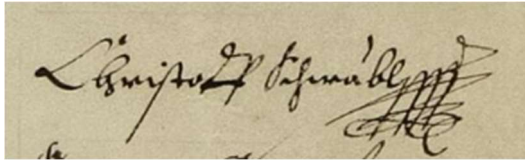 Christoff Schwäbl